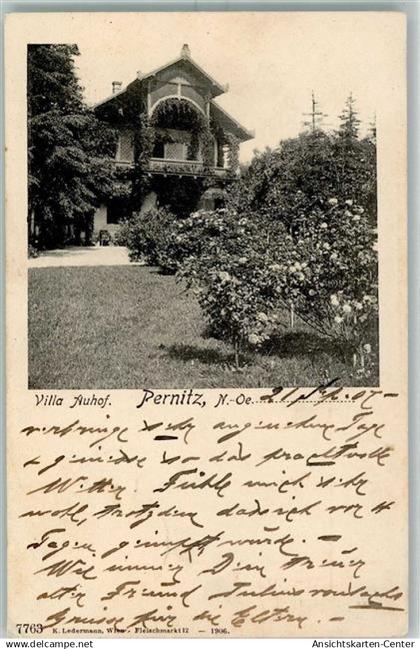 Villa Auhof. Pernitz, N.-Oe. 21/ 07
verbringe ich angenehme Tage
& genieße so das prachtvolle
Wetter. Fühle mich sehr
wohl, trotzdem dass ich vor 14
Tagen geimpft wurde. –
Wie immer Dein treuer
alter Freund Julius
Grüsse für die Eltern.
7763 K. Ledermann, Wien - Fleischmarkt 12 - 1906.
ansichtskarten-center.de